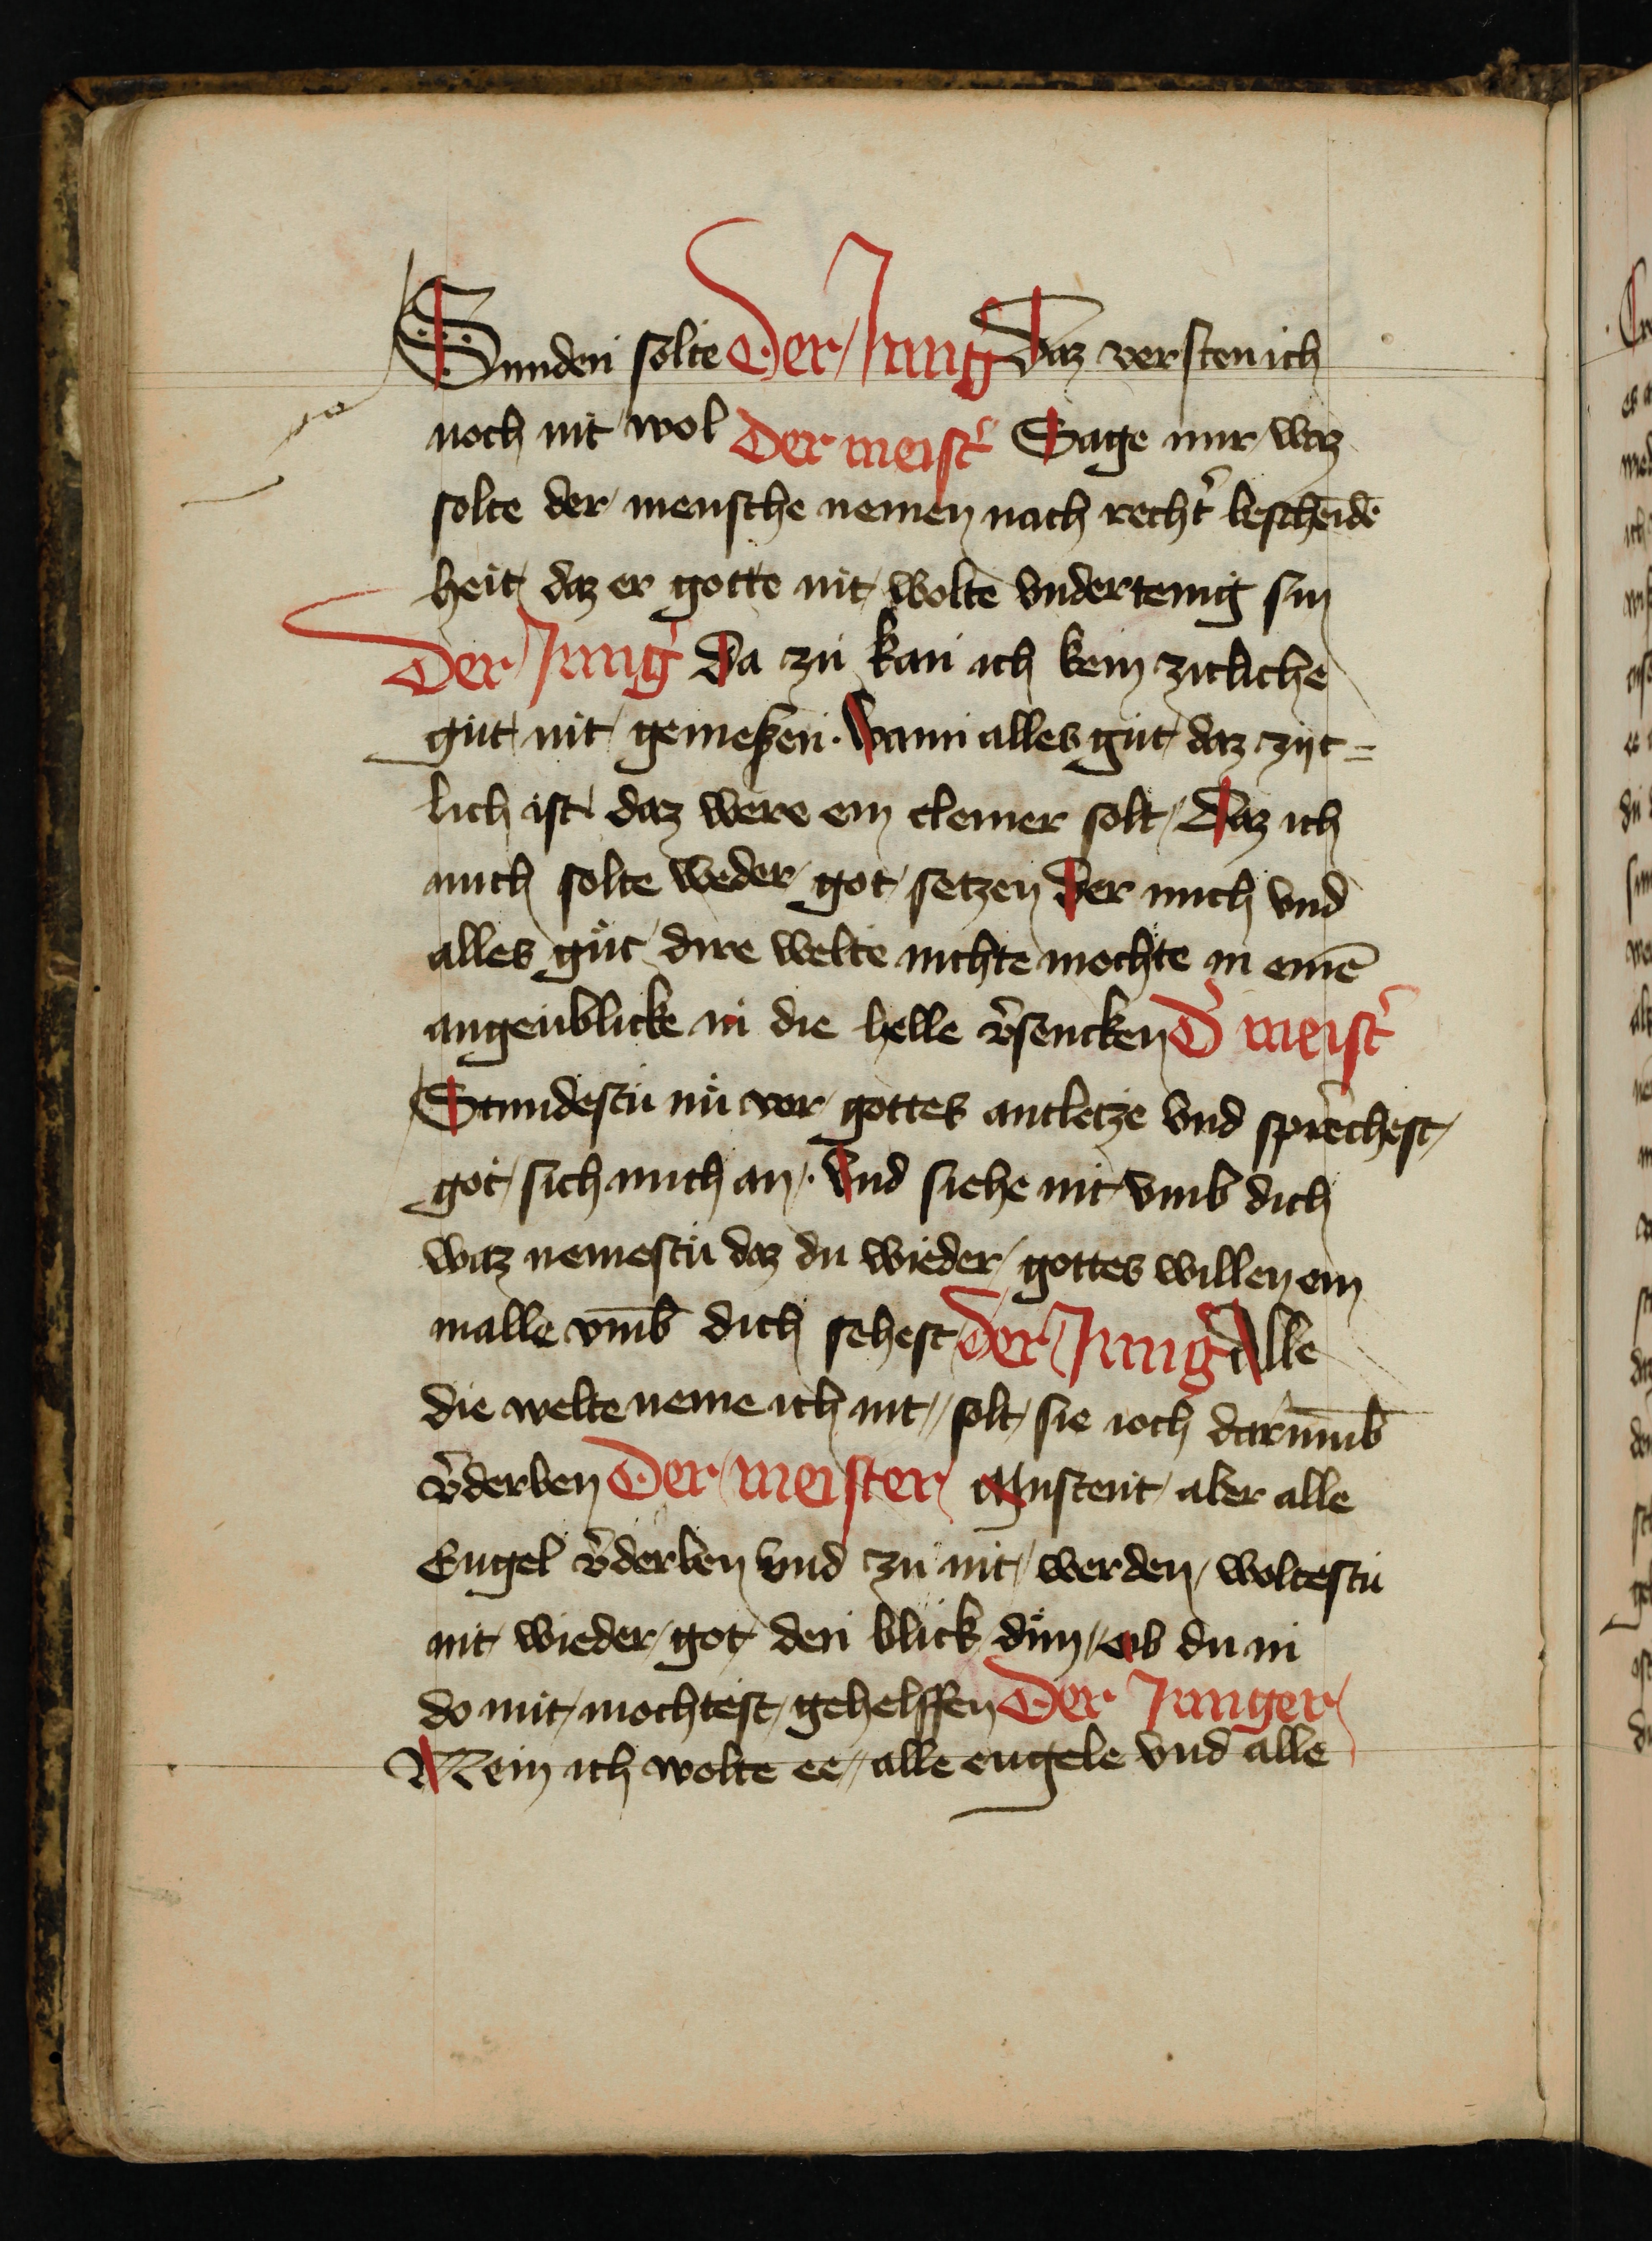 Sunden solte Der Jung̛ Daz versten ich
noch nit wol Der meist̛ Sage mir waz
solte der mensche nemen nach recht̛ bescheidē
heit daz er gotte nit wolte vndertenig sin
Der Jung̛ Da zu kan ich kein zitliche
gut nit gemeßen · Wann alles gut daz zijt=
lich ist daz were ein cleiner solt Daz ich
mich solte weder got setzen Der mich vnd
alles gut dire welte nichte mochte in einē
augenblicke in die helle v̛sencken D̛ meist̛
Stundestu nu vor gottes antletze vnd sprechest
got sich mich an · Vnd siehe nit vmb dich
waz nemestu daz du wieder gottes willen ein
malle vm̄b dich sehest Der Jung̛ Alle
die welte neme ich nit solt sie ioch darūmb
v̛derben Der meister Musten't aber alle
Engel v̛derben vnd zu nit werden woltestu
nit wieder got den blick dun ob du in
do mit mochtest gehelffen Der Junger
Nein ich wolte ee alle engele vnd alle